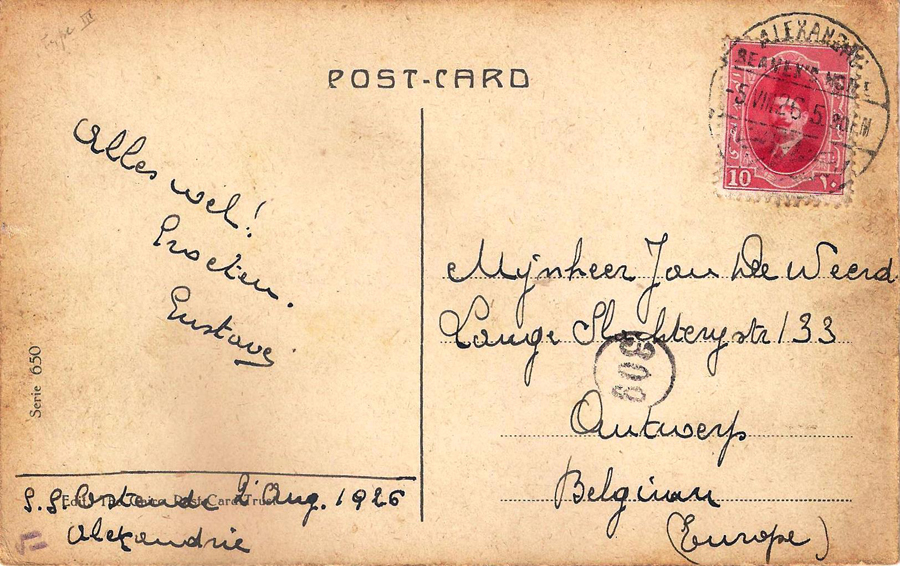 Type III
POST-CARD
ALEXANDRIA
SEAMEN'S HOME
-5 VIII 26 5. 30 EM
10
١٠
Alles wel!
Groeten.
Gustave
Mijnheer Jan De Weerd
Lange Slachterystr 133
309
Antwerp
Belgium
(Europe)
Serie 650
Edit. The Cairo Post Card Trust
S.S. Ostende 2 Aug. 1926
Alexandrie